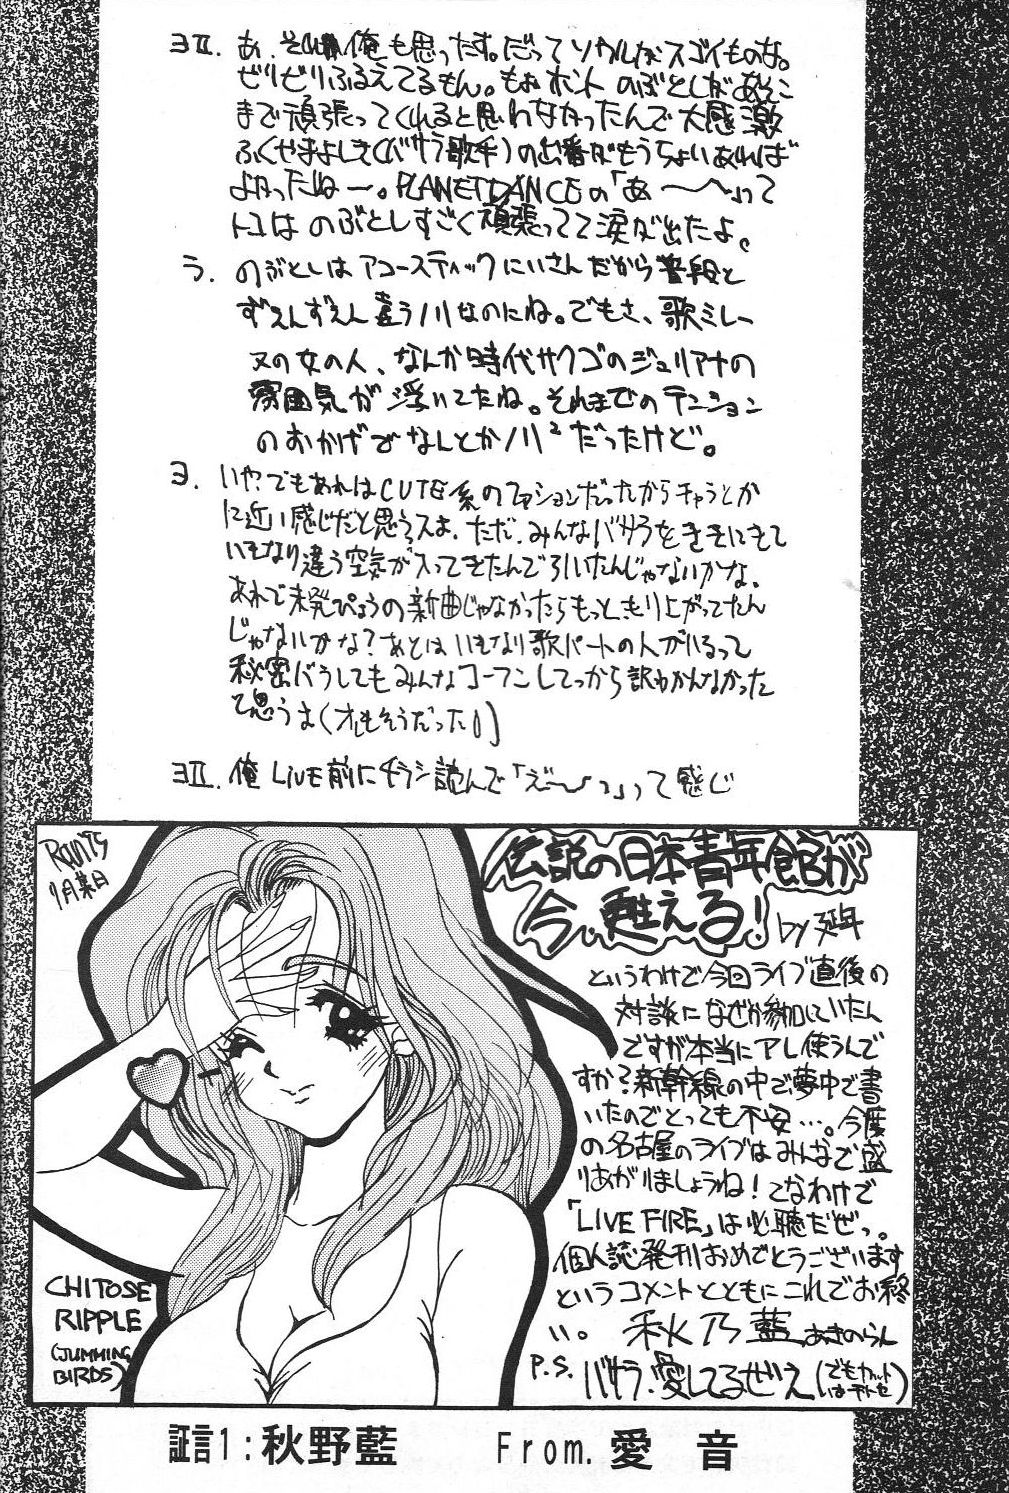 ヨII. あ、それ俺も思ったす。だってソウルがスゴイものな。
ビリビリふるえてるもん。もぉホント のぶとしがあそこ
まで頑張ってくれると思わなかったんで大感激
ふくやまよしき(バサラ歌手)の出番がもうちょいあれば
よかったねー。PLANET DANCEの「あ〜〜」って
トコは のぶとしすごく頑張ってて涙が出たよ。
う. のぶとしはアコースティックにいさんだから普段と
ずえんずえん違うノリなのにね。でもさ、歌ミレー
ヌの女の人、なんか時代サクゴのジュリアナの
雰囲気が浮いてたね。それまでのテンション
のおかげでなんとかノリ²だったけど。
ヨ. いや?でもあれはCUTE系のファッションだったからキャラとか
に近い感じだと思うスよ。ただ、みんなバサラをききにきて
いきなり違う空気が入ってきたんで引いたんじゃないかな。
あれで未発ぴょうの新曲じゃなかったらもっともり上がってたん
じゃないかな?あとはいきなり歌パートの人がいるって
秘密バラしてもみんなコーフンしてっから訳わかんなかった
て思うよ(オレもそうだった!)
ヨII. 俺 LIVE前にチラシ読んで「え〜〜っ」って感じ
伝説の日本青年館が
今、甦える!
by 延年
というわけで今回ライブ直後の
対談になぜか参加していたん
ですが本当にアレ使うんで
すか?新幹線の中で夢中で書
いたのでとっても不安…。今度
の名古屋のライブはみんなで盛
りあがりましょうね!てなわけで
「LIVE FIRE」は必聴だぜっ。
個人誌発刊おめでとうございます
というコメントとともにこれでお終
い。 秋乃藍 あきのらん
P.S. バサラ、愛してるぜえ(でもカットはチトセ)
7月某日
CHITOSE
RIPPLE
(JUMMING
BIRDS)
証言1:秋野藍 From.愛 音